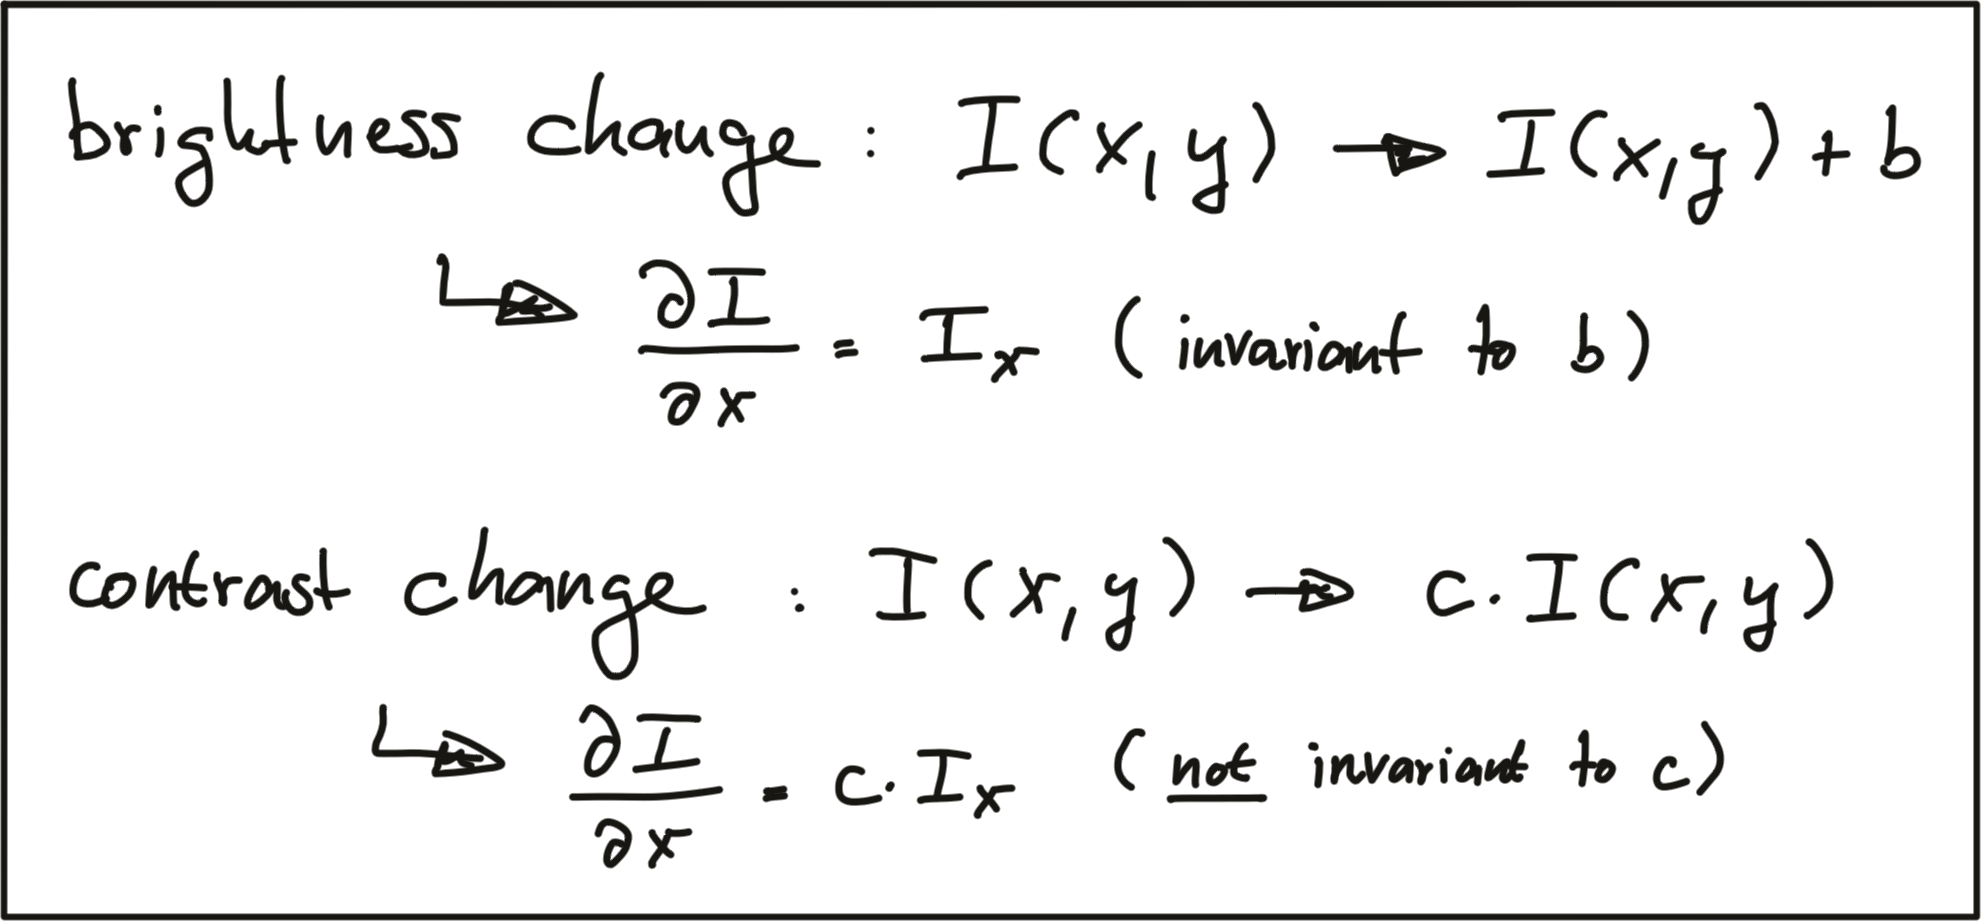 brightness change : I(x,y) → I(x,y) + b
↳ ∂I/∂x = Iₓ (invariant to b)
contrast change : I(x,y) → c · I(x,y)
↳ ∂I/∂x = c · Iₓ (not invariant to c)